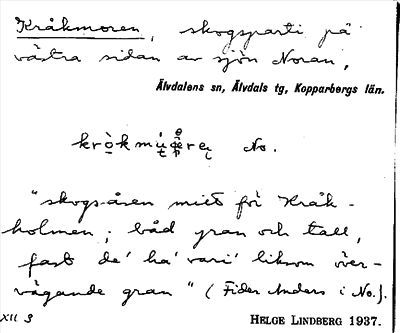 Kråkmoren, skogsparti på
västra sidan av sjön Noran,
Älvdalens sn, Älvdals tg, Kopparbergs län.
No.
"skogs-åsen mitt för Kråk-
holmen; båd gran och tall,
fast de' ha' vari' liksom över-
vägande gran" (Fider Anders i No.).
XII 3
HELGE LINDBERG 1937.